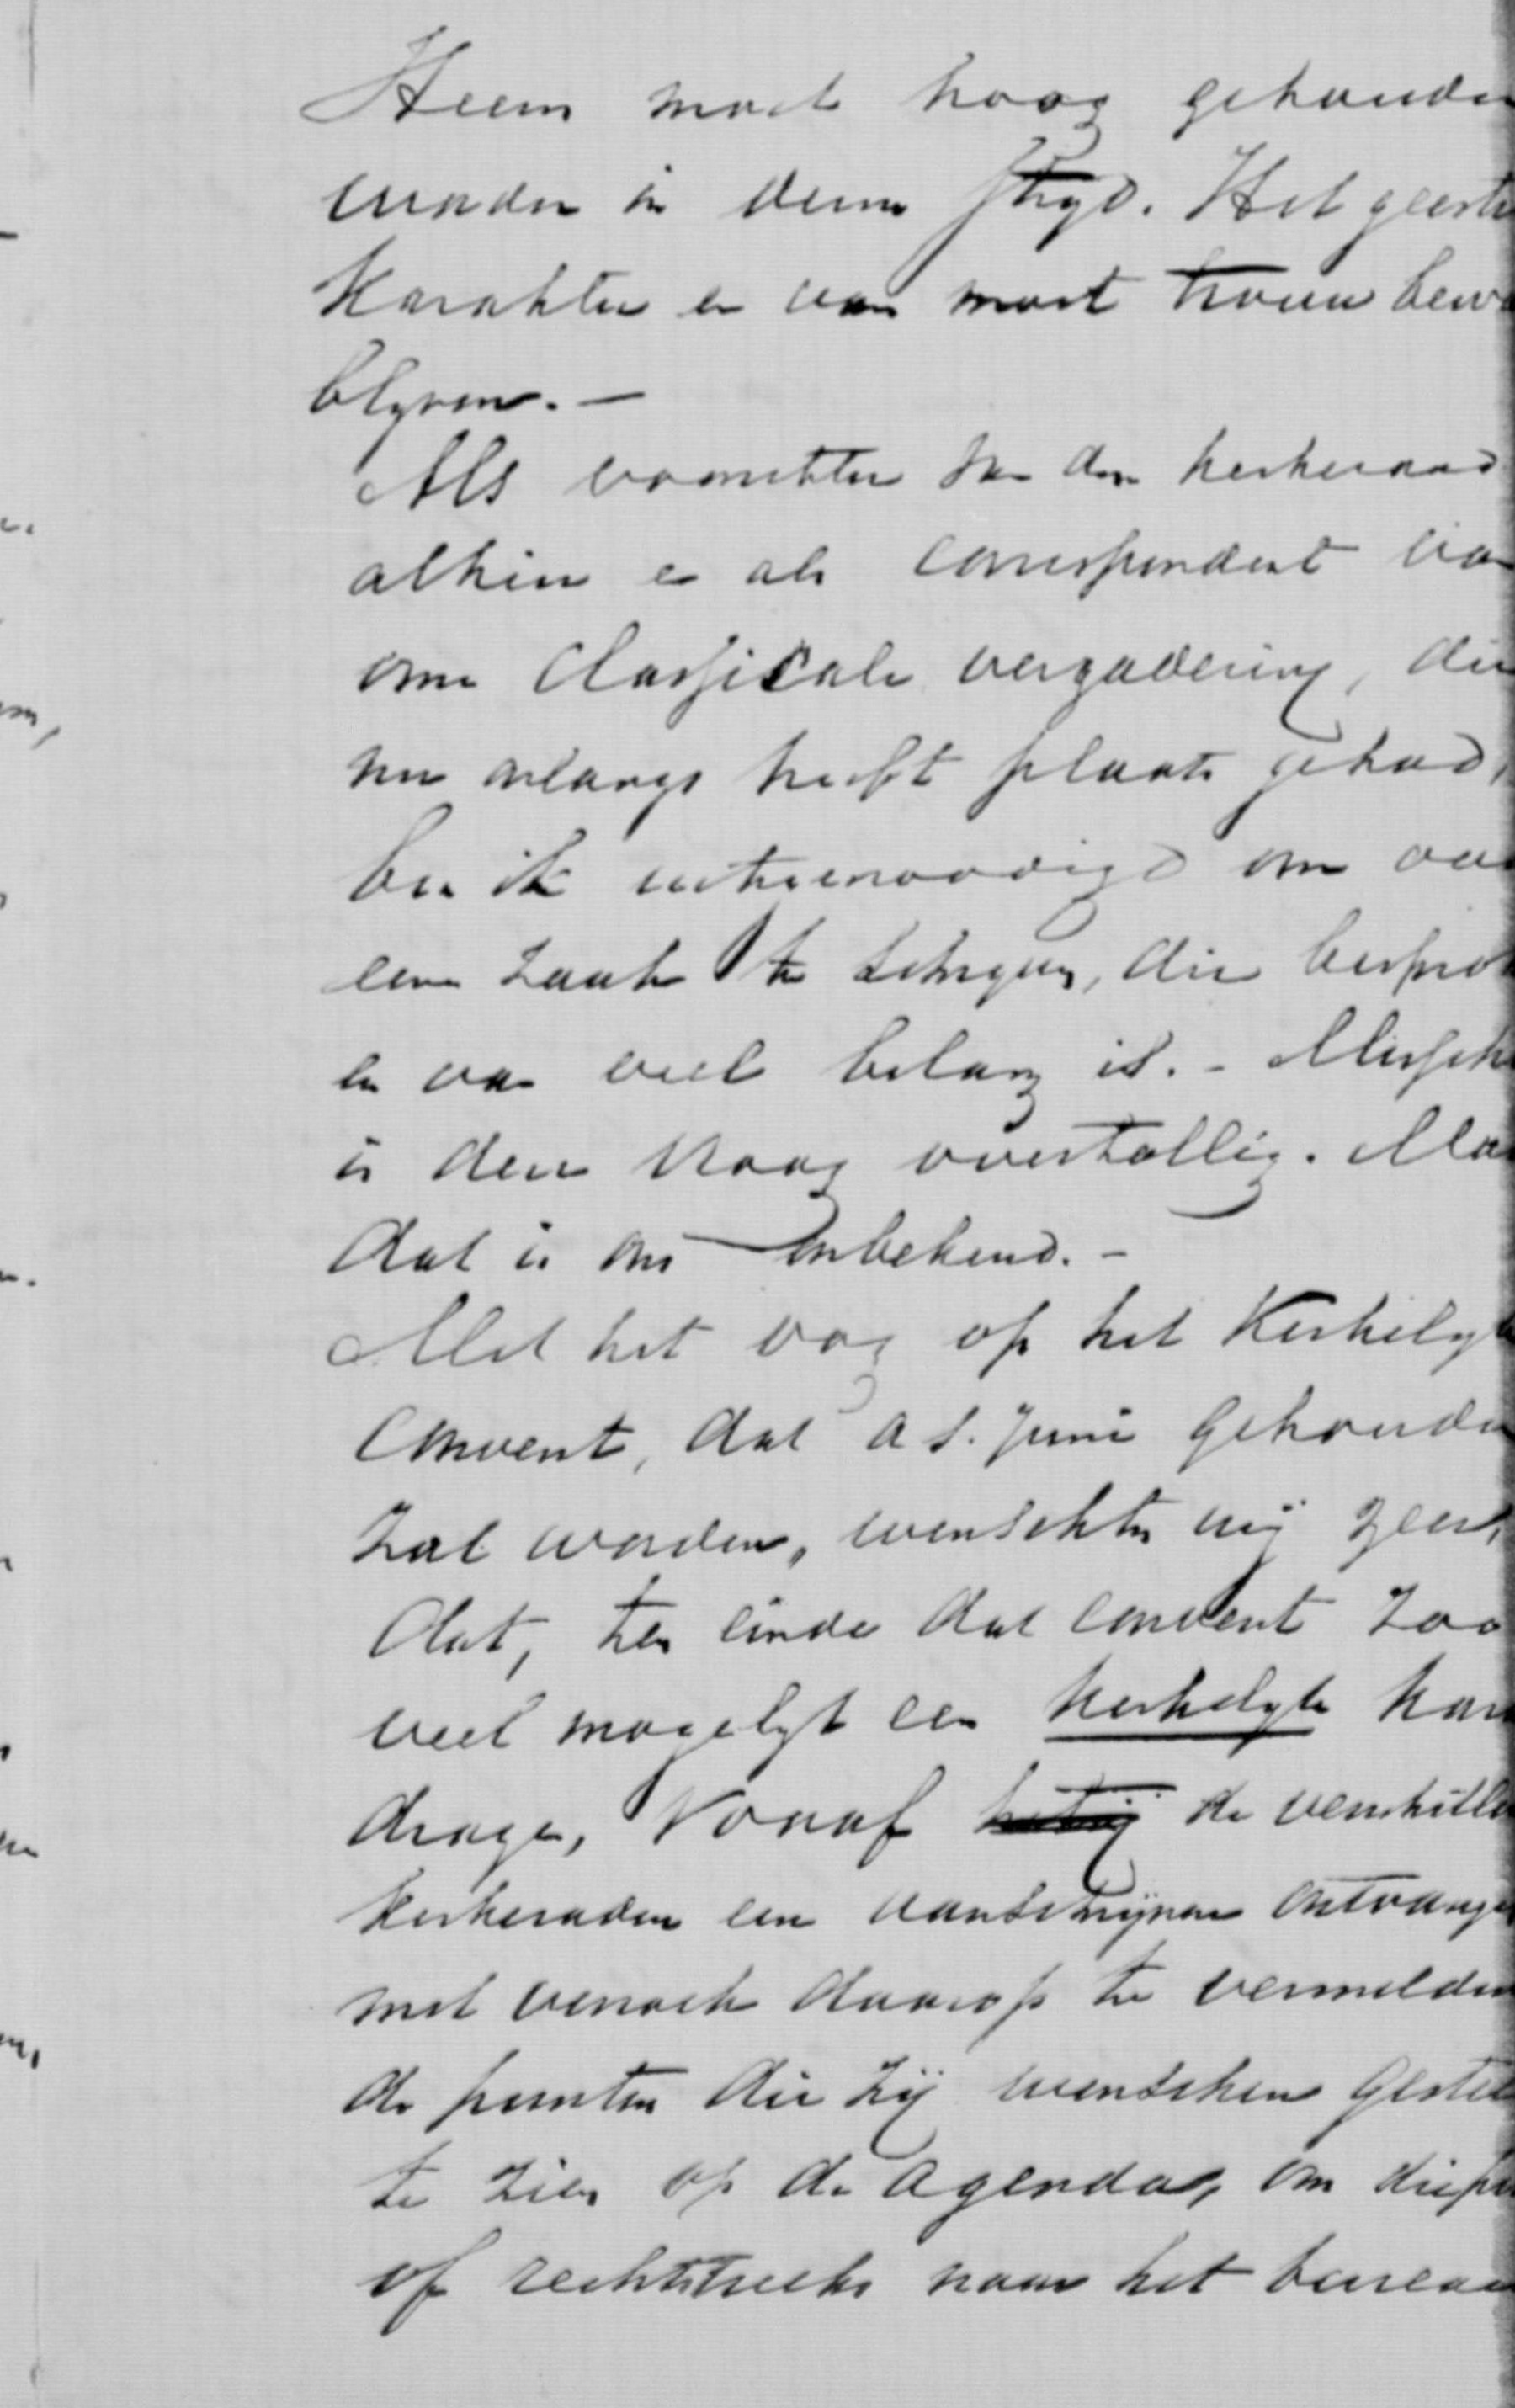 Heern moet hoog gehouden
worden in deen strijd. Het geeste
karakter er van moet trouw bew
blyven. —
Als voorzitter van den kerkeraad
alhier en als correspondent van
onze Classicale vergadering, die
nu onlangs heeft plaats gehad,
ben ik uitgenoodigd om over
eene zaak te schryven, die besprok
en van veel belang is. - Missch
is deze vraag overtollig. Ma
dat is ons onbekend. -
Met het oog op het Kerkelyk
Convent, dat a s. Juni gehouden
zal worden, wenschten wij zeer,
dat, ten einde dat convent zoo
veel mogelyk een kerkelyk kar
drage, vooraf de verschille
kerkeraden een aanschrijven ontvange
met verzoek daarop te vermelden
de punten die zij wenschen gestel
te zien op de agenda, om die
of rechtstreeks naar het bureau